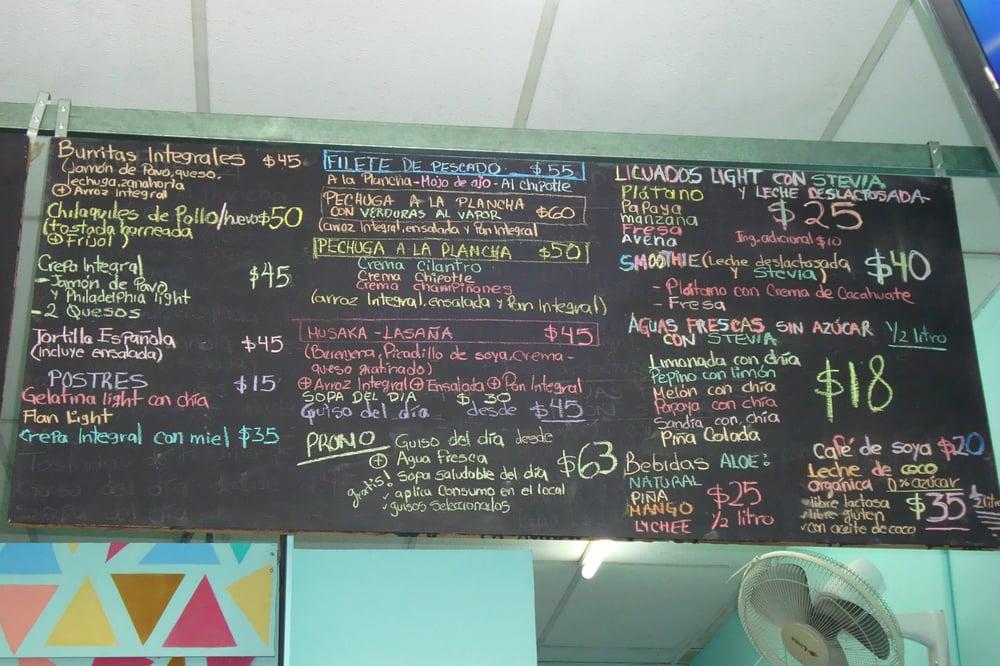 Burritas Integrales $45
(Jamón de Pavo, queso,
lechuga, zanahoria
+ Arroz Integral
Chilaquiles de Pollo/huevo $50
(tostada horneada
+ Frijol)
Crepa Integral $45
- Jamón de Pavo
y Philadelphia light
- 2 Quesos
Tortilla Española $45
(Incluye ensalada)
POSTRES $15
Gelatina light con chía
Flan Light
Crepa Integral con miel $35
FILETE DE PESCADO $55
A la Plancha - Mojo de ajo - Al chipotle
PECHUGA A LA PLANCHA
CON VERDURAS AL VAPOR $60
(arroz Integral, ensalada y Pan Integral
PECHUGA A LA PLANCHA $50
Crema cilantro
Crema chipotle
Crema champiñones
(arroz Integral, ensalada y Pan Integral)
MUSAKA - LASAÑA $45
(Berenjena, Picadillo de soya, Crema -
queso gratinado)
+ Arroz Integral + Ensalada + Pan Integral
SOPA DEL DIA $30
Guiso del día desde $45
PROMO Guiso del día desde
+ Agua Fresca $63
gratis! Sopa saludable del día
✓ aplica Consumo en el local
✓ guisos seleccionados
LICUADOS LIGHT CON STEVIA
Y LECHE DESLACTOSADA
Plátano $25
Papaya
manzana
Fresa Ing. adicional $10
Avena
SMOOTHIE (Leche deslactosada
y Stevia) $40
- Plátano con Crema de Cacahuate
- Fresa
AGUAS FRESCAS SIN AZÚCAR 1/2 litro
CON STEVIA
Limonada con chía $18
Pepino con limón
Melón con chía
Papaya con chía
Sandía con chía
Piña Colada
Bebidas ALOE:
NATURAL
PIÑA $25
MANGO
LYCHEE 1/2 litro
Café de soya $20
Leche de coco
orgánica 0% azúcar
✓libre lactosa $35 1/2 litro
✓libre gluten
✓con aceite de coco